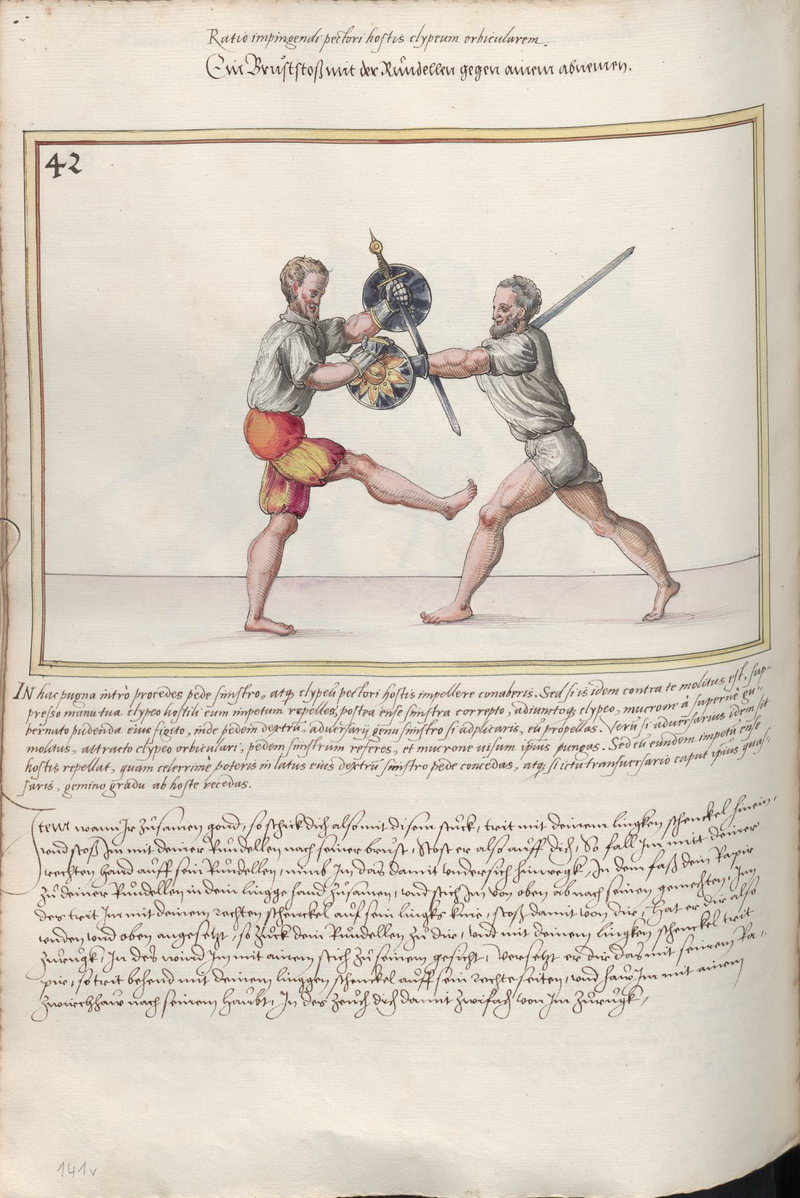 Ratio impingendi pectori hostis clypeum orbicularem.
Ein Bruststoß mit der Rundellen gegen ainem abnemen.
42
IN hac pugna intrò procedes pede sinistro, atq clypeū pectori hostis impellere conaberis. Sed si is idem contra te molitus est, sup-
presso manu tua clypeo hostili eum impetum repelles, postea ense sinistra correpto, adiunctoq clypeo, mucrone à supernè gu-
bernato pudenda eius figito, inde pedem dextrū, aduersarij genu sinistro si adplicaris, eū propellas. Verū si aduersarius idem sit
molitus, attracto clypeo orbiculari, pedem sinistrum referes, et mucrone uisum ipius pungas. Sed cū eundem impetū ense
hostis repellat, quàm celerrimè poteris in latus eius dextrū sinistro pede concedas, atq si ictu transuersario caput ipius quas-
saris, gemino gradu ab hoste recedas.
Item wann Ir zusamen gond, so schick dich also mit disem stuck, trit mit deinem lingken schenckel hinein,
vnd stoß Im mit deiner Rundellen nach seiner brust, Stost er also auff dich, So fall Im mit deiner
rechten hand auff sein Rundellen, vnnd Im das damit vndersich hinwegk, In dem faß dein Rapir
zu deiner Rundellen in dein lingge hand zusamen, vnd stich Im von oben ab nach seinen gemechten, Im
des trit Im mit deinem rechten schenckel auf sein lingks knie, stoß damit von dir, Hat er dir also
vnden vnd oben angesetzt, so zuck dein Rundellen zu dir, vnd mit deinem lingken schenckel trit
zurugk, In des wind Im mit ainem stich zu seinem gesicht, Versetzt er dir das mit seinem Ra-
pir, so trit behend mit deinem linggen schenckel auff sein rechte seiten, vnd haw Im mit ainem
zwirchhaw nach seinem haubt, In des zeuch dich damit zwifach von Im zurugk,
141v